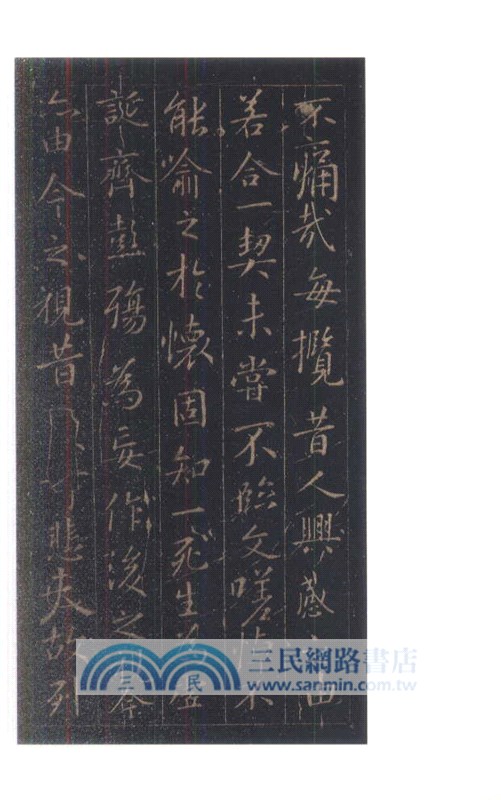 不痛哉每攬昔人興感之由
若合一契未嘗不臨文嗟悼不
能喻之於懷固知一死生為虛
誕齊彭殤為妄作後之視今
亦由今之視昔悲夫故列
三民網路書店
www.sanmin.com.tw
三 民